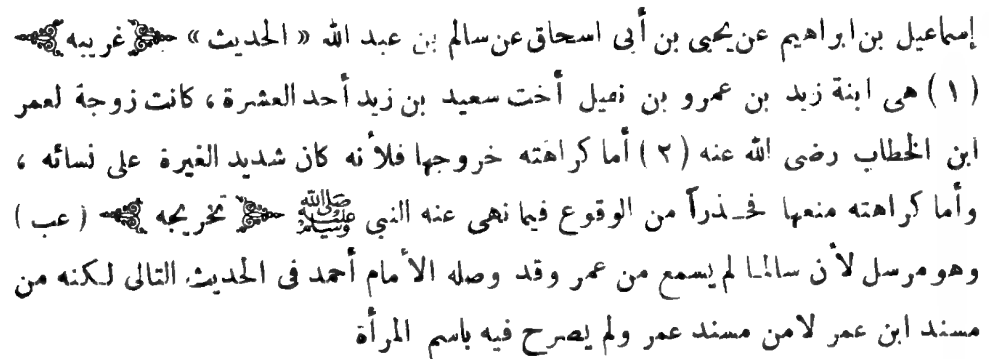 إسماعيل بن ابراهيم عن يحيى بن أبى اسحاق عن سالم بن عبد الله «الحديث» ﴿غريبه﴾
(١) هى ابنة زيد بن عمرو بن نفيل أخت سعيد بن زيد أحد العشرة، كانت زوجة لعمر
ابن الخطاب رضى الله عنه (٢) أما كراهته خروجها فلأنه كان شديد الغيرة على نسائه،
وأما كراهته منعها فحذراً من الوقوع فيما نهى عنه النبي ﷺ ﴿تخريجه﴾ (عب)
وهو مرسل لأن سالما لم يسمع من عمر وقد وصله الأمام أحمد فى الحديث التالى لكنه من
مسند ابن عمر لامن مسند عمر ولم يصرح فيه باسم المرأة